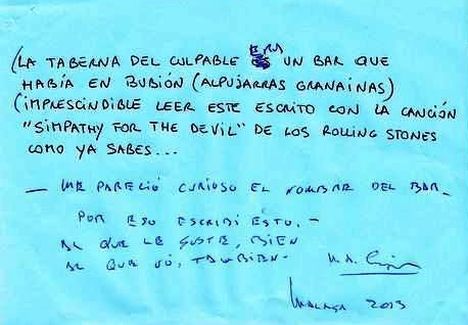 (LA TABERNA DEL CULPABLE ERA UN BAR QUE
HABÍA EN BUBIÓN (ALPUJARRAS GRANAINAS)
(IMPRESCINDIBLE LEER ESTE ESCRITO CON LA CANCIÓN
"SIMPATHY FOR THE DEVIL" DE LOS ROLLING STONES
COMO YA SABES...
— ME PARECIÓ CURIOSO EL NOMBRE DEL BAR—
POR ESO ESCRIBÍ ÉSTO.—
AL QUE LE GUSTE, BIEN
AL QUE NO, TAMBIEN.
M.A.
MALAGA 2013